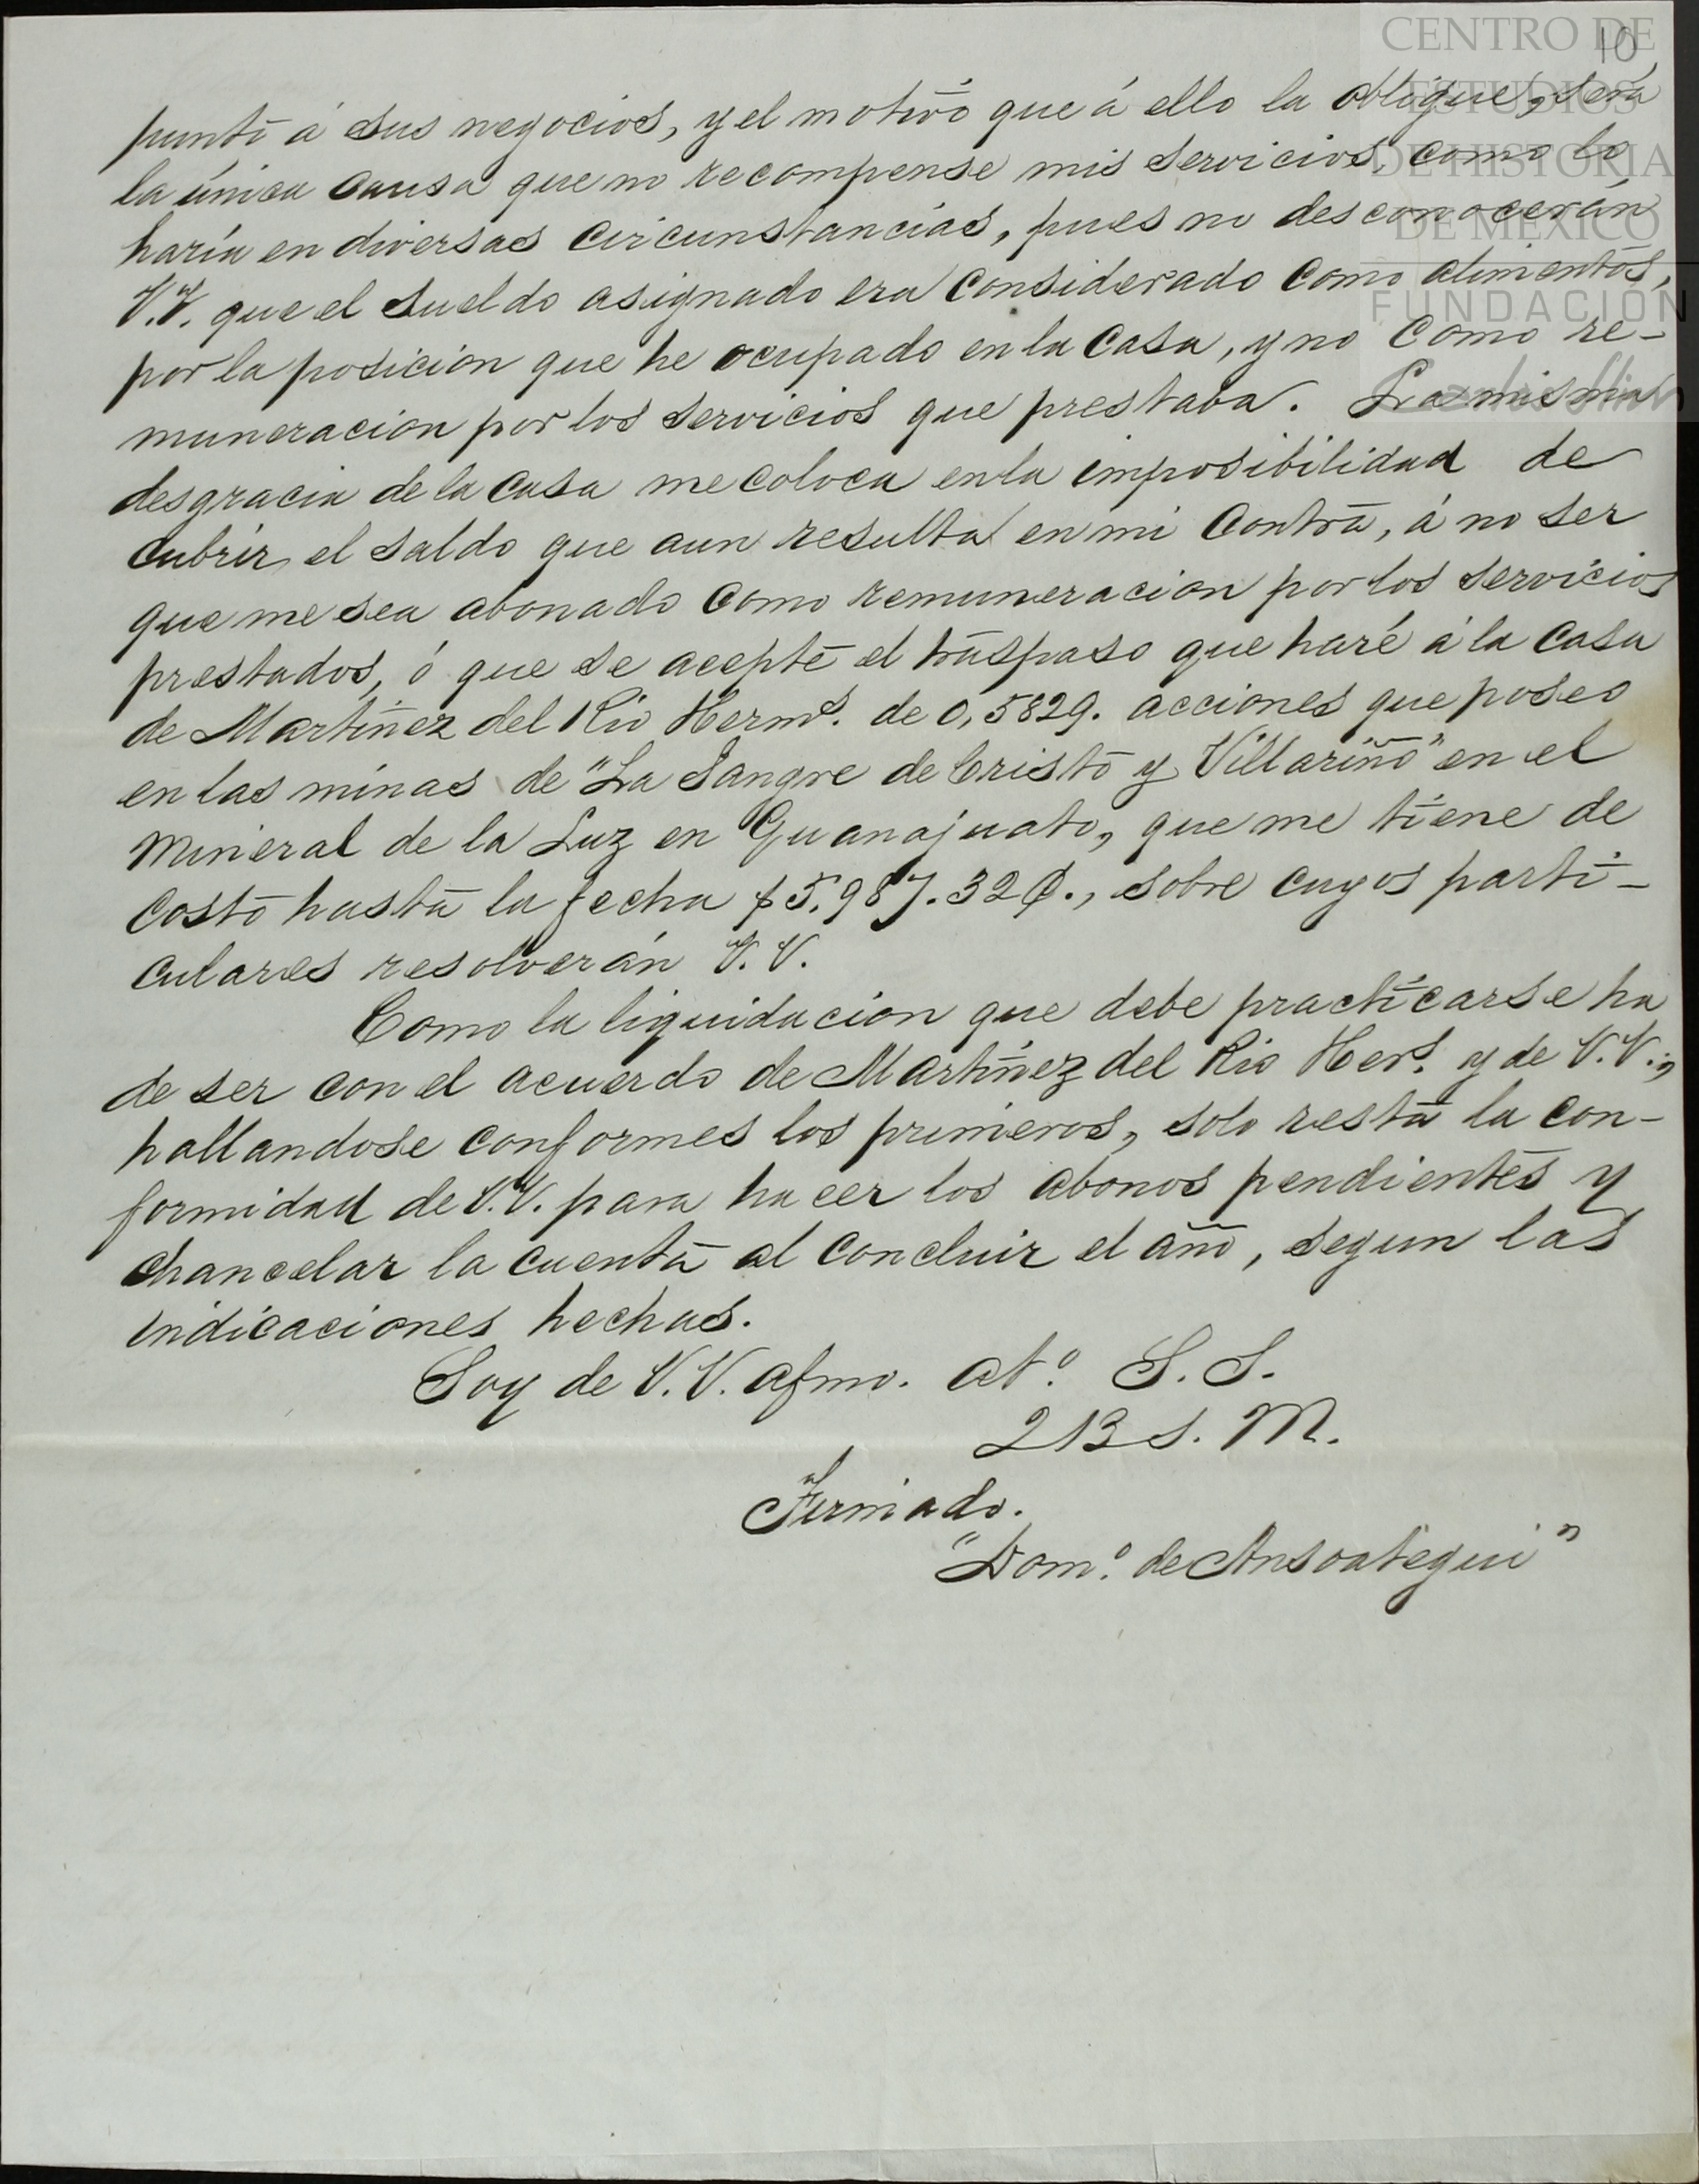 10
CENTRO DE
ESTUDIOS
DE HISTORIA
DE MÉXICO
FUNDACIÓN
punto á sus negocios, y el motivo que á ello la obligue, será
la única causa que no recompense mis servicios, como lo
haría en diversas circunstancias, pues no desconocerán
V.V. que el sueldo asignado era considerado como alimentos,
por la posicion que he ocupado en la casa, y no como re-
muneracion por los servicios que prestaba. La misma
desgracia de la casa me coloca en la imposibilidad de
cubrir el saldo que aun resulta en mi contra, á no ser
que me sea abonado como remuneracion por los servicios
prestados, ó que se acepte el traspaso que haré á la casa
de Martinez del Rio Hermˢ. de 0,5829. acciones que poseo
en las minas de "La Sangre de Cristo y Villariño" en el
Mineral de la Luz en Guanajuato, que me tiene de
costo hasta la fecha $5,987.32¢., sobre cuyos parti-
culares resolverán V.V.
Como la liquidacion que debe practicarse ha
de ser con el acuerdo de Martinez del Rio Herˢ. y de V.V.,
hallandose conformes los primeros, solo resta la con-
formidad de V.V. para hacer los abonos pendientes y
chancelar la cuenta al concluir el año, segun las
indicaciones hechas.
Soy de V.V. afmo. atº. S.S.
2 B S. M.
Firmado.
"Domº. de Ansoategui"